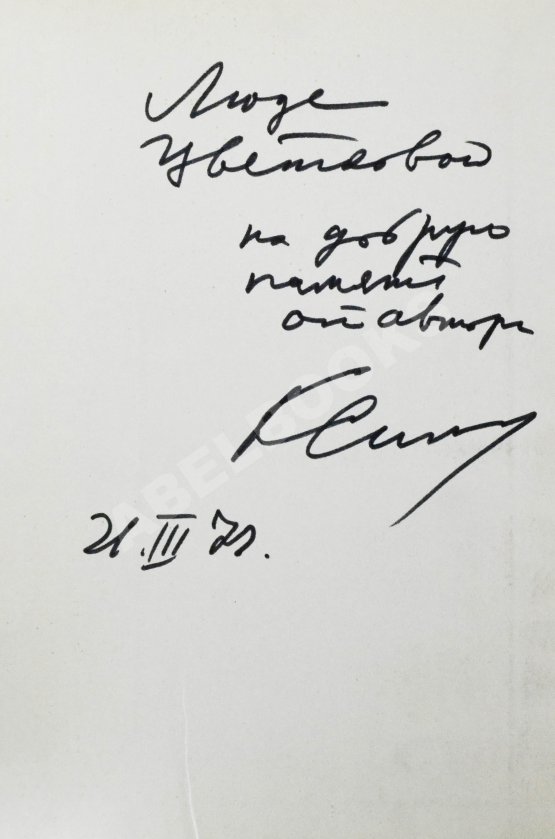 Люде
Цветковой
на добрую
память
от автора
КСим
21.III 71.
ABELBOOKS